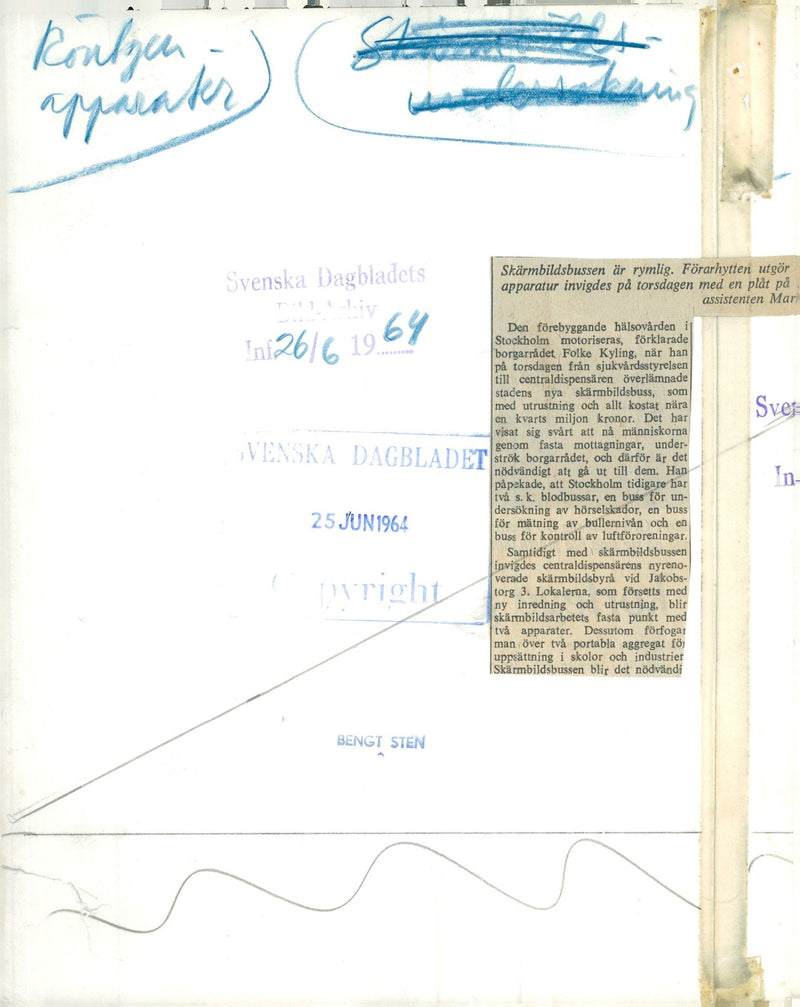 Röntgen-
apparater
undersökning
Svenska Dagbladets
Bild-Arkiv
Inf 26/6 1964
SVENSKA DAGBLADET
25 JUN 1964
Copyright
BENGT STEN
Skärmbildsbussen är rymlig. Förarhytten utgör
apparatur invigdes på torsdagen med en plåt på
assistenten Mar
Den förebyggande hälsovården i
Stockholm motoriseras, förklarade
borgarrådet Folke Kyling, när han
på torsdagen från sjukvårdsstyrelsen
till centraldispensären överlämnade
stadens nya skärmbildsbuss, som
med utrustning och allt kostat nära
en kvarts miljon kronor. Det har
visat sig svårt att nå människorna
genom fasta mottagningar, under-
strök borgarrådet, och därför är det
nödvändigt att gå ut till dem. Han
påpekade, att Stockholm tidigare har
två s. k. blodbussar, en buss för un-
dersökning av hörselskador, en buss
för mätning av bullernivån och en
buss för kontroll av luftföroreningar.
Samtidigt med skärmbildsbussen
invigdes centraldispensärens nyreno-
verade skärmbildsbyrå vid Jakobs-
torg 3. Lokalerna, som försetts med
ny inredning och utrustning, blir
skärmbildsarbetets fasta punkt med
två apparater. Dessutom förfogar
man över två portabla aggregat för
uppsättning i skolor och industrier
Skärmbildsbussen blir det nödvändi
Sven
In-